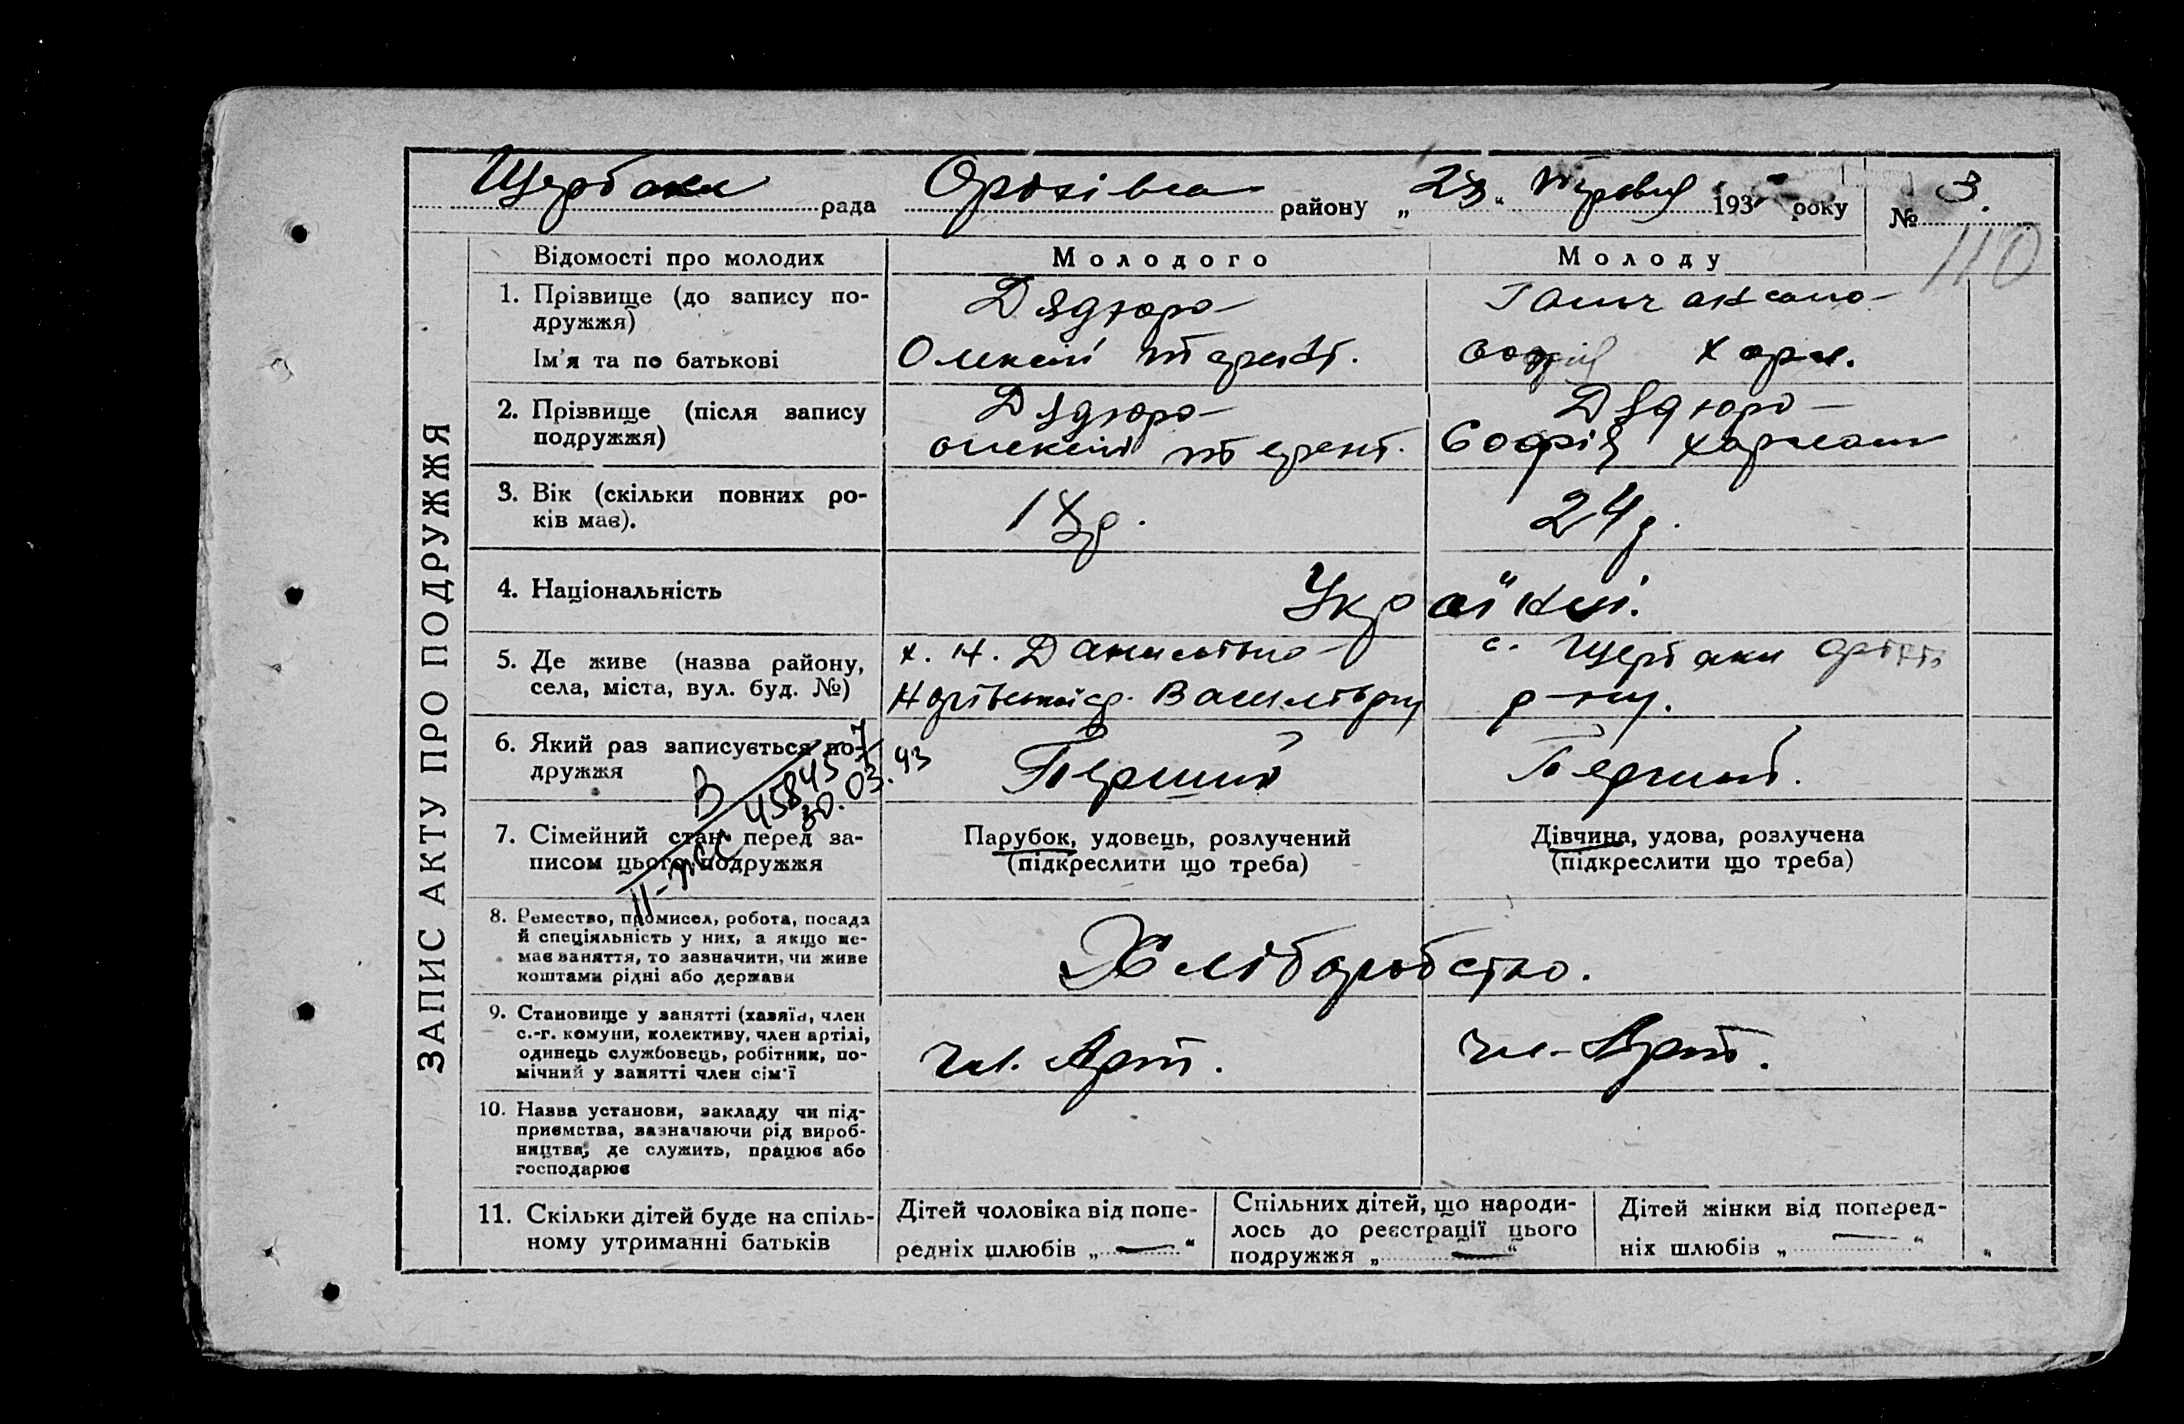 Щербаки рада Оріхівсь району „23“ Травня 193 року № 3.
110
ЗАПИС АКТУ ПРО ПОДРУЖЖЯ
Відомості про молодих
Молодого
Молоду
1. Прізвище (до запису по-
дружжя)
Дядюра
Ім'я та по батькові
Олексій Терент.
Софія Харл.
2. Прізвище (після запису
подружжя)
Дядюра
Олексій Терент.
Дядюра
Софія
3. Вік (скільки повних ро-
ків має).
18 р.
24 р.
4. Національність
Українці.
5. Де живе (назва району,
села, міста, вул. буд. №)
х. Н. Данилівка
Василівськ
с. Щербаки Оріхів
р-ну.
6. Який раз записується по-
дружжя
Перший
Перший.
В 458457
30.03.93
7. Сімейний стан перед за-
писом цього подружжя
Парубок, удовець, розлучений
(підкреслити що треба)
Дівчина, удова, розлучена
(підкреслити що треба)
8. Ремество, промисел, робота, посада
й спеціяльність у них, а якщо не-
має заняття, то зазначити, чи живе
коштами рідні або держави
Хліборобство.
9. Становище у занятті (хазяїн, член
с.-г. комуни, колективу, член артілі,
одинець службовець, робітник, по-
мічний у занятті член сім'ї
Чл. Арт.
Чл. Арт.
10. Назва установи, закладу чи під-
приємства, зазначаючи рід вироб-
ництва, де служить, працює або
господарює
11. Скільки дітей буде на спіль-
ному утриманні батьків
Дітей чоловіка від попе-
редніх шлюбів „—“
Спільних дітей, що народи-
лось до реєстрації цього
подружжя „—“
Дітей жінки від поперед-
ніх шлюбів „—“